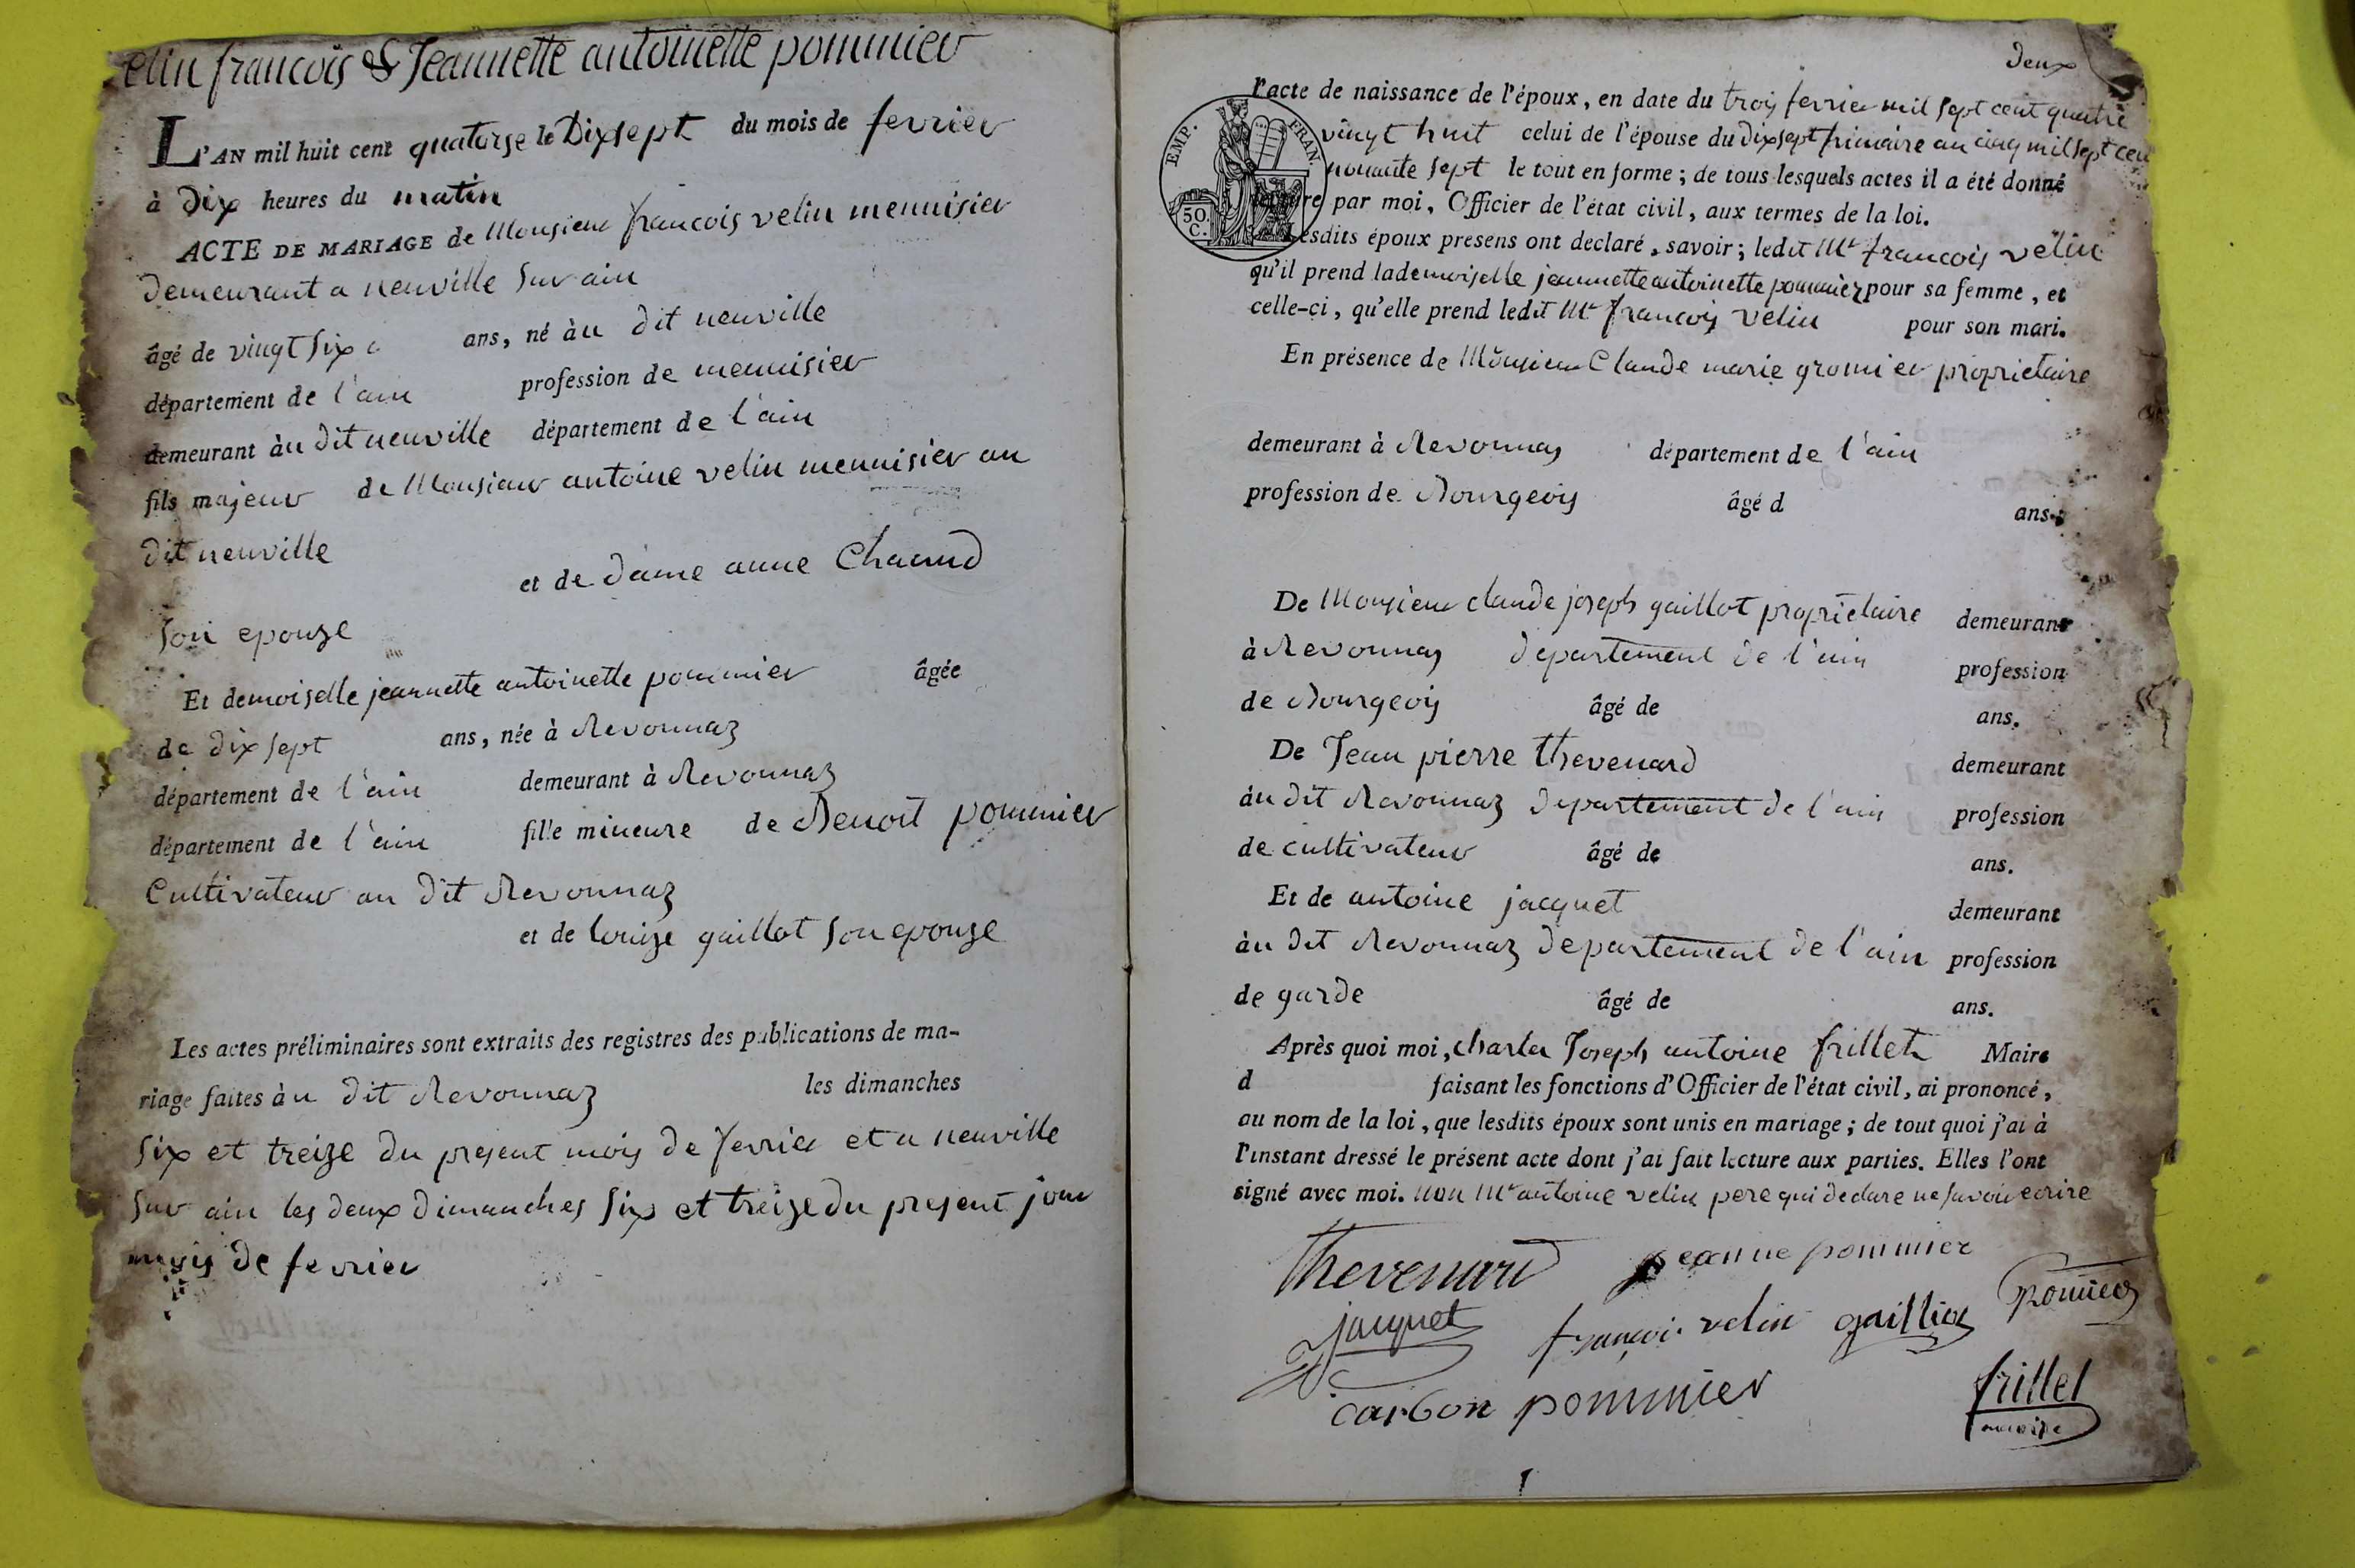 elin francois & Jeannette antoinette pommier
L'AN mil huit cent quatorze le Dixsept du mois de fevrier
à Dix heures du matin
ACTE DE MARIAGE de Monsieur francois velin menuisier
demeurant a neuville sur ain
âgé de vingt six ans, né àu dit neuville
département de l'ain profession de menuisier
demeurant àu dit neuville département de l'ain
fils majeur de Monsieur antoine velin menuisier au
dit neuville
et de dame anne
son epouze
Et demoiselle jeannette antoinette pommier âgée
de dix sept ans, née à Revonnaz
département de l'ain demeurant à Revonnaz
département de l'ain fille mineure de Benoit pommier
Cultivateur au dit Revonnaz
et de louize gaillot son epouze
Les actes préliminaires sont extraits des registres des publications de ma-
riage faites àu dit Revonnaz les dimanches
six et treize du present mois de fevrier et a neuville
sur ain les deux dimanches six et treize du present jour
mois de fevrier
deux
l'acte de naissance de l'époux, en date du trois fevrier mil sept cent quatre
EMP. FRAN. vingt huit celui de l'épouse du dixsept frimaire an cinq mil sept cen
nonante sept le tout en forme ; de tous lesquels actes il a été donné
50. C. lecture par moi, Officier de l'état civil, aux termes de la loi.
Lesdits époux presens ont declaré, savoir ; ledit Mr francois velin
qu'il prend lademoiselle jeannette antoinette pommier pour sa femme, et
celle-ci, qu'elle prend ledit Mr francois velin pour son mari.
En présence de Monsieur Claude marie gromier proprietaire
demeurant à Revonnas département de l'ain
profession de Bourgeois âgé d ans.
De Monsieur claude joseph gaillot proprietaire demeurant
à Revonnas departement de l'ain profession
de Bourgeois âgé de ans.
De Jean pierre thevenard demeurant
àu dit Revonnaz departement de l'ain profession
de cultivateur âgé de ans.
Et de antoine jacquet demeurant
àu dit Revonnaz departement de l'ain profession
de garde âgé de ans.
Après quoi moi, charles Joseph antoine frillet Maire
d faisant les fonctions d'Officier de l'état civil, ai prononcé,
au nom de la loi, que lesdits époux sont unis en mariage ; de tout quoi j'ai à
l'instant dressé le présent acte dont j'ai fait lecture aux parties. Elles l'ont
signé avec moi. non Mr antoine velin pere qui declare ne savoir ecrire
thevenard jeanne pommier
jacquet francoi velin gailliot pommier
carbon pommier frillet
maire